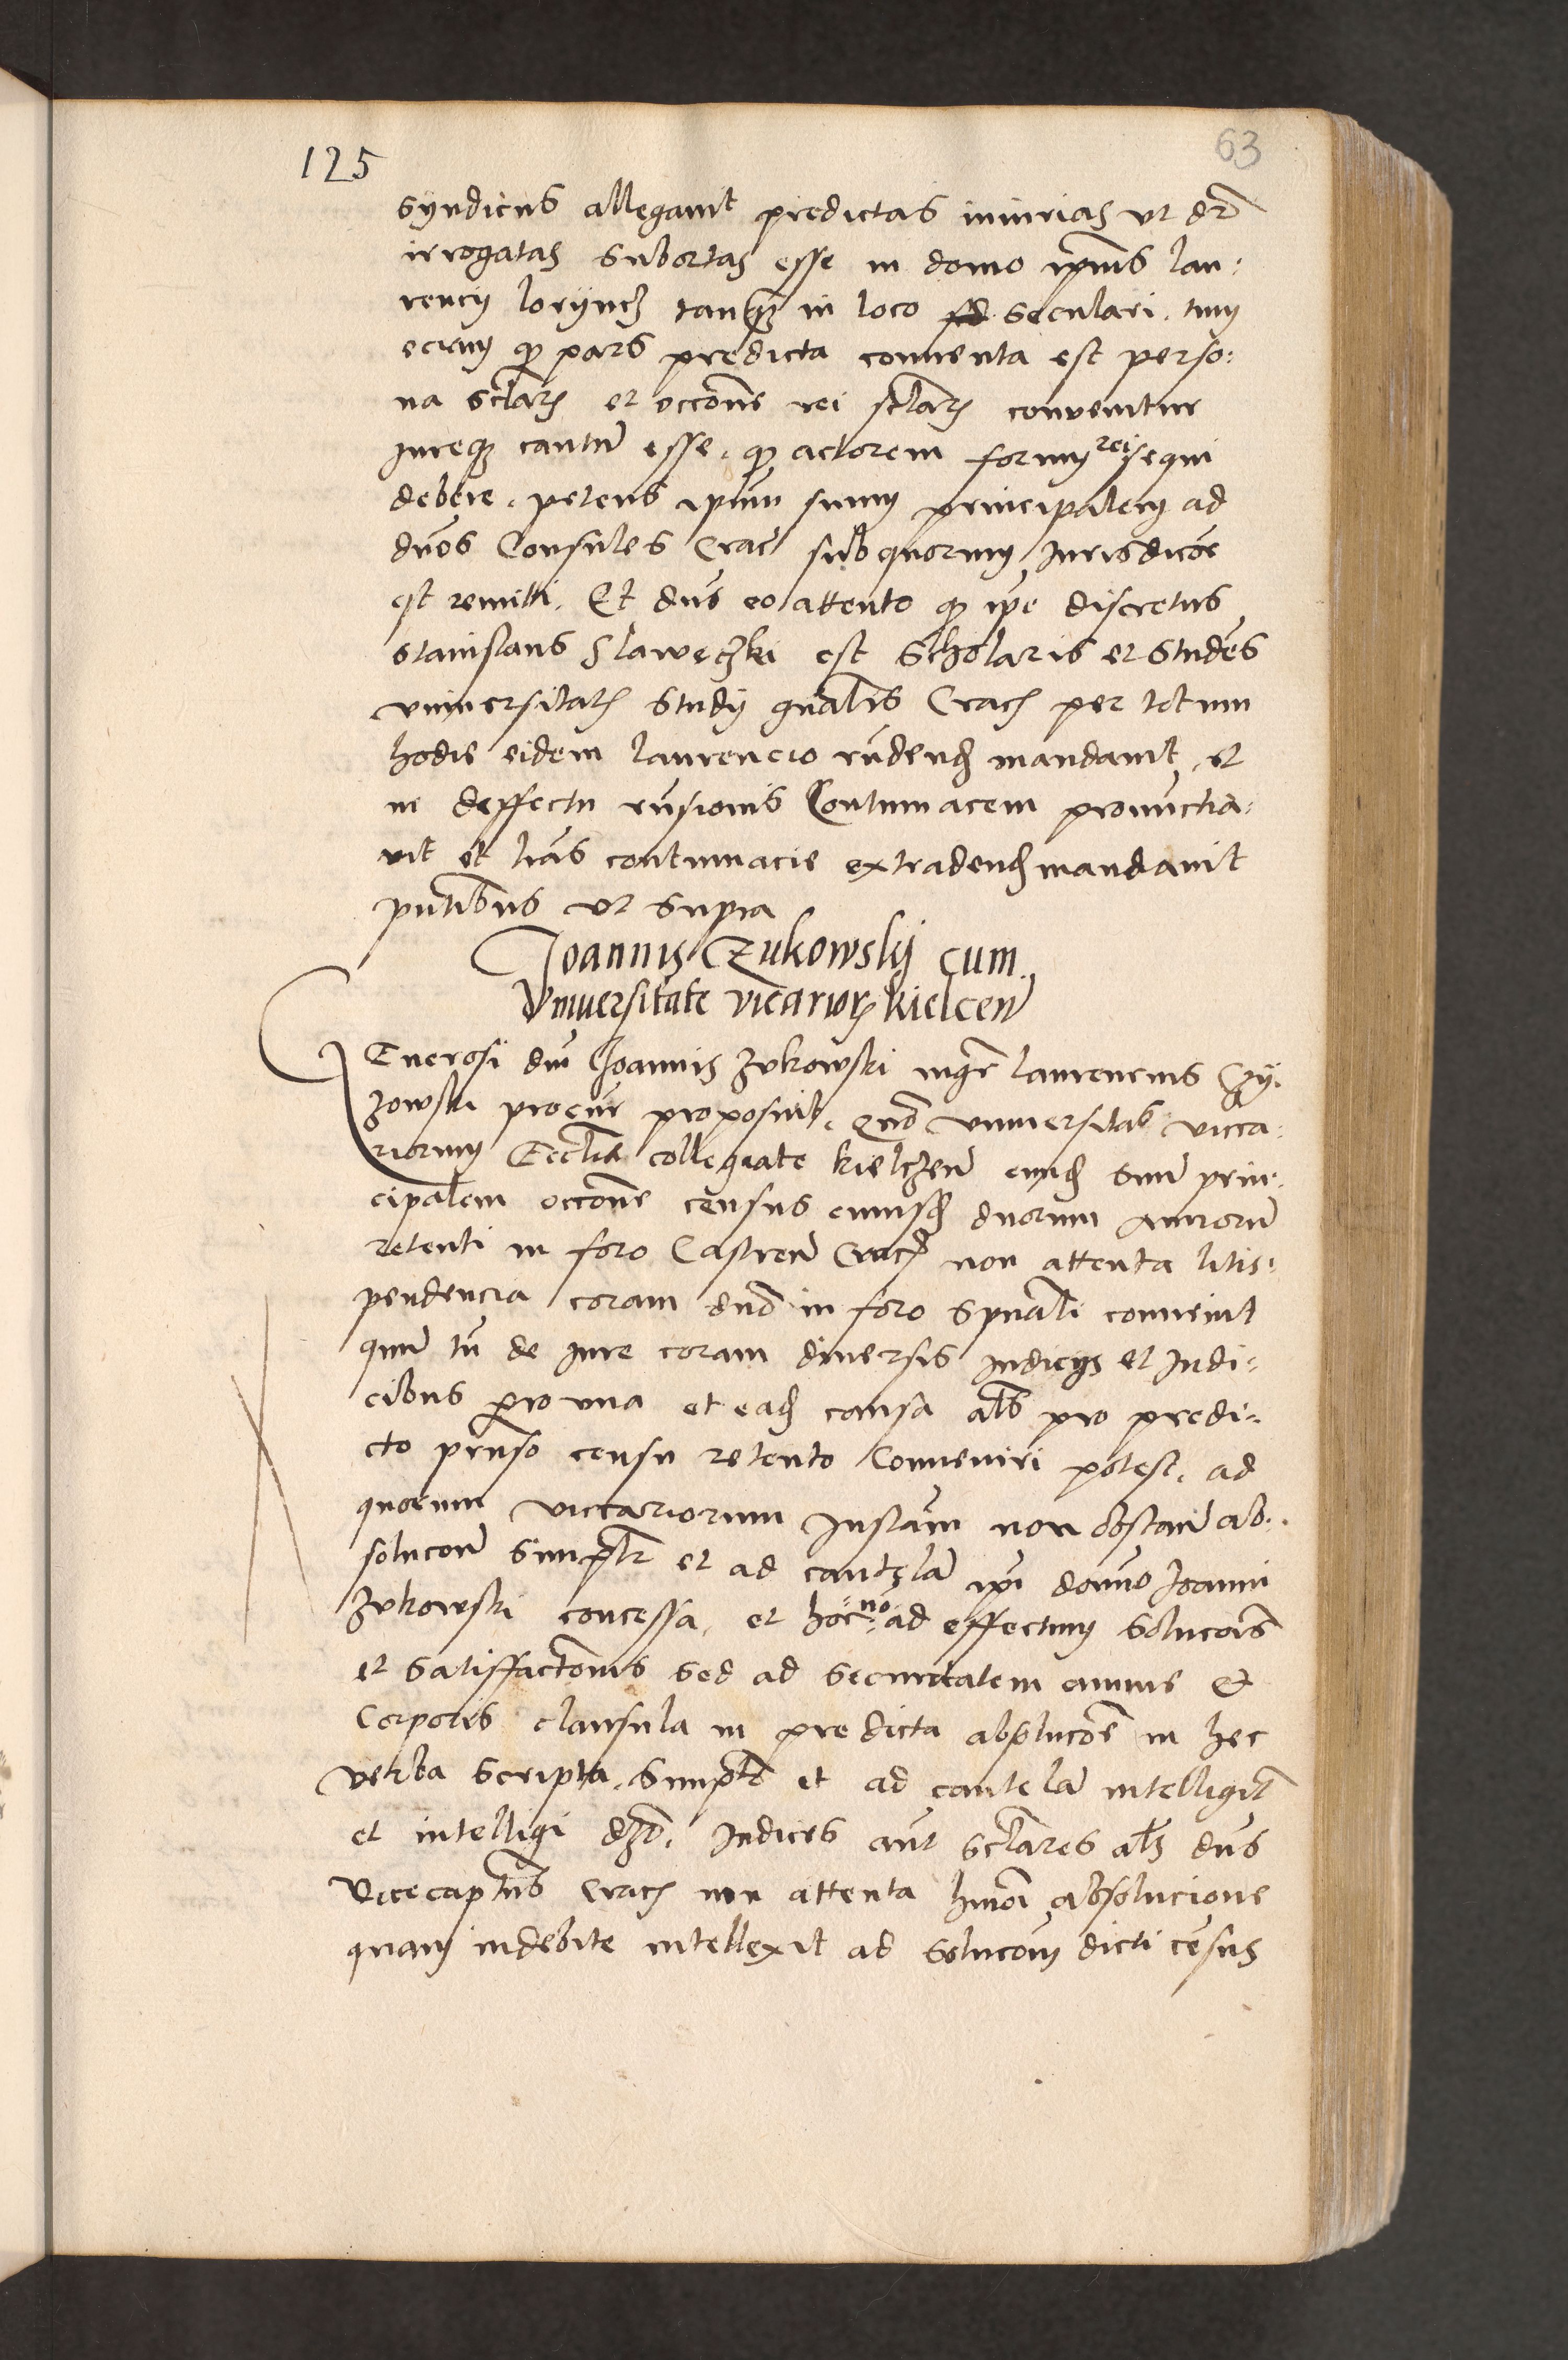 125
63
syndicus allegavit predictas iniurias ut dr̄
irrogatas subortas esse in domo ipīus lau:
rencij lorÿncz tanq̄ in loco seculari. tum
eciam qz pars predicta conventa est perso:
na sēlaris et occōne rei sēlaris convenitur
jureqz cautū esse. qz actorem forum rei sequi
debere. petens ipūm suum principalem ad
dnōs Consules Crac̄ sub quorum Jurisdicōe
est remitti. Et dnūs eo attento qz ipe discretus
stanislaus Slawęczki est Scholaris et Studēs
universitatis Studij gnālis Crac̄ per totum
hodie eidem laurencio rn̄dendum mandavit. et
in deffectu rn̄sionis Contumacem pronunctia:
vit et lrās contumacie extradendum mandavit
pntībus ut supra
Joannis Czukowskÿ cum
Universitate vicariorum Kielcen̄
GEnerosi dnī Joannis Zukowski mgr̄ laurencius Czÿ:
zowski procur̄ proposuit. Quō universitas vicca:
riorum Eccliē collegiate kielczen̄ eundem suū prin:
cipalem occōne census cuiusdam duorum annorū
retenti in foro Castren̄ Crac̄ non attenta litis:
pendencia coram dnō in foro spūali convenit
quū tn̄ de jure coram diversis judicijs et Judi:
cibus pro una et eadem causa als̄ pro predi:
cto censu retento Conveniri potest. ad
quorum viccariorum Instān̄ non obstan̄ ab:
solucōn̄ simplr̄ et ad cautelā ipī domino Joanni
Zukowski concessa. et hoc no ad effectum Solucōis
et Satisffactōnis sed ad securitatem anime Et
Corporis clausula in predicta absolucōe in hec
verba scripta. simplr̄ et ad cautelā intelligit̄
et intelligi d. Judices aut̄ sēlares als̄ dnūs
Vicecaptn̄s Crac̄ non attenta hmōi absolucione
quam indebite intellexit ad Solucōm dicti cēsus